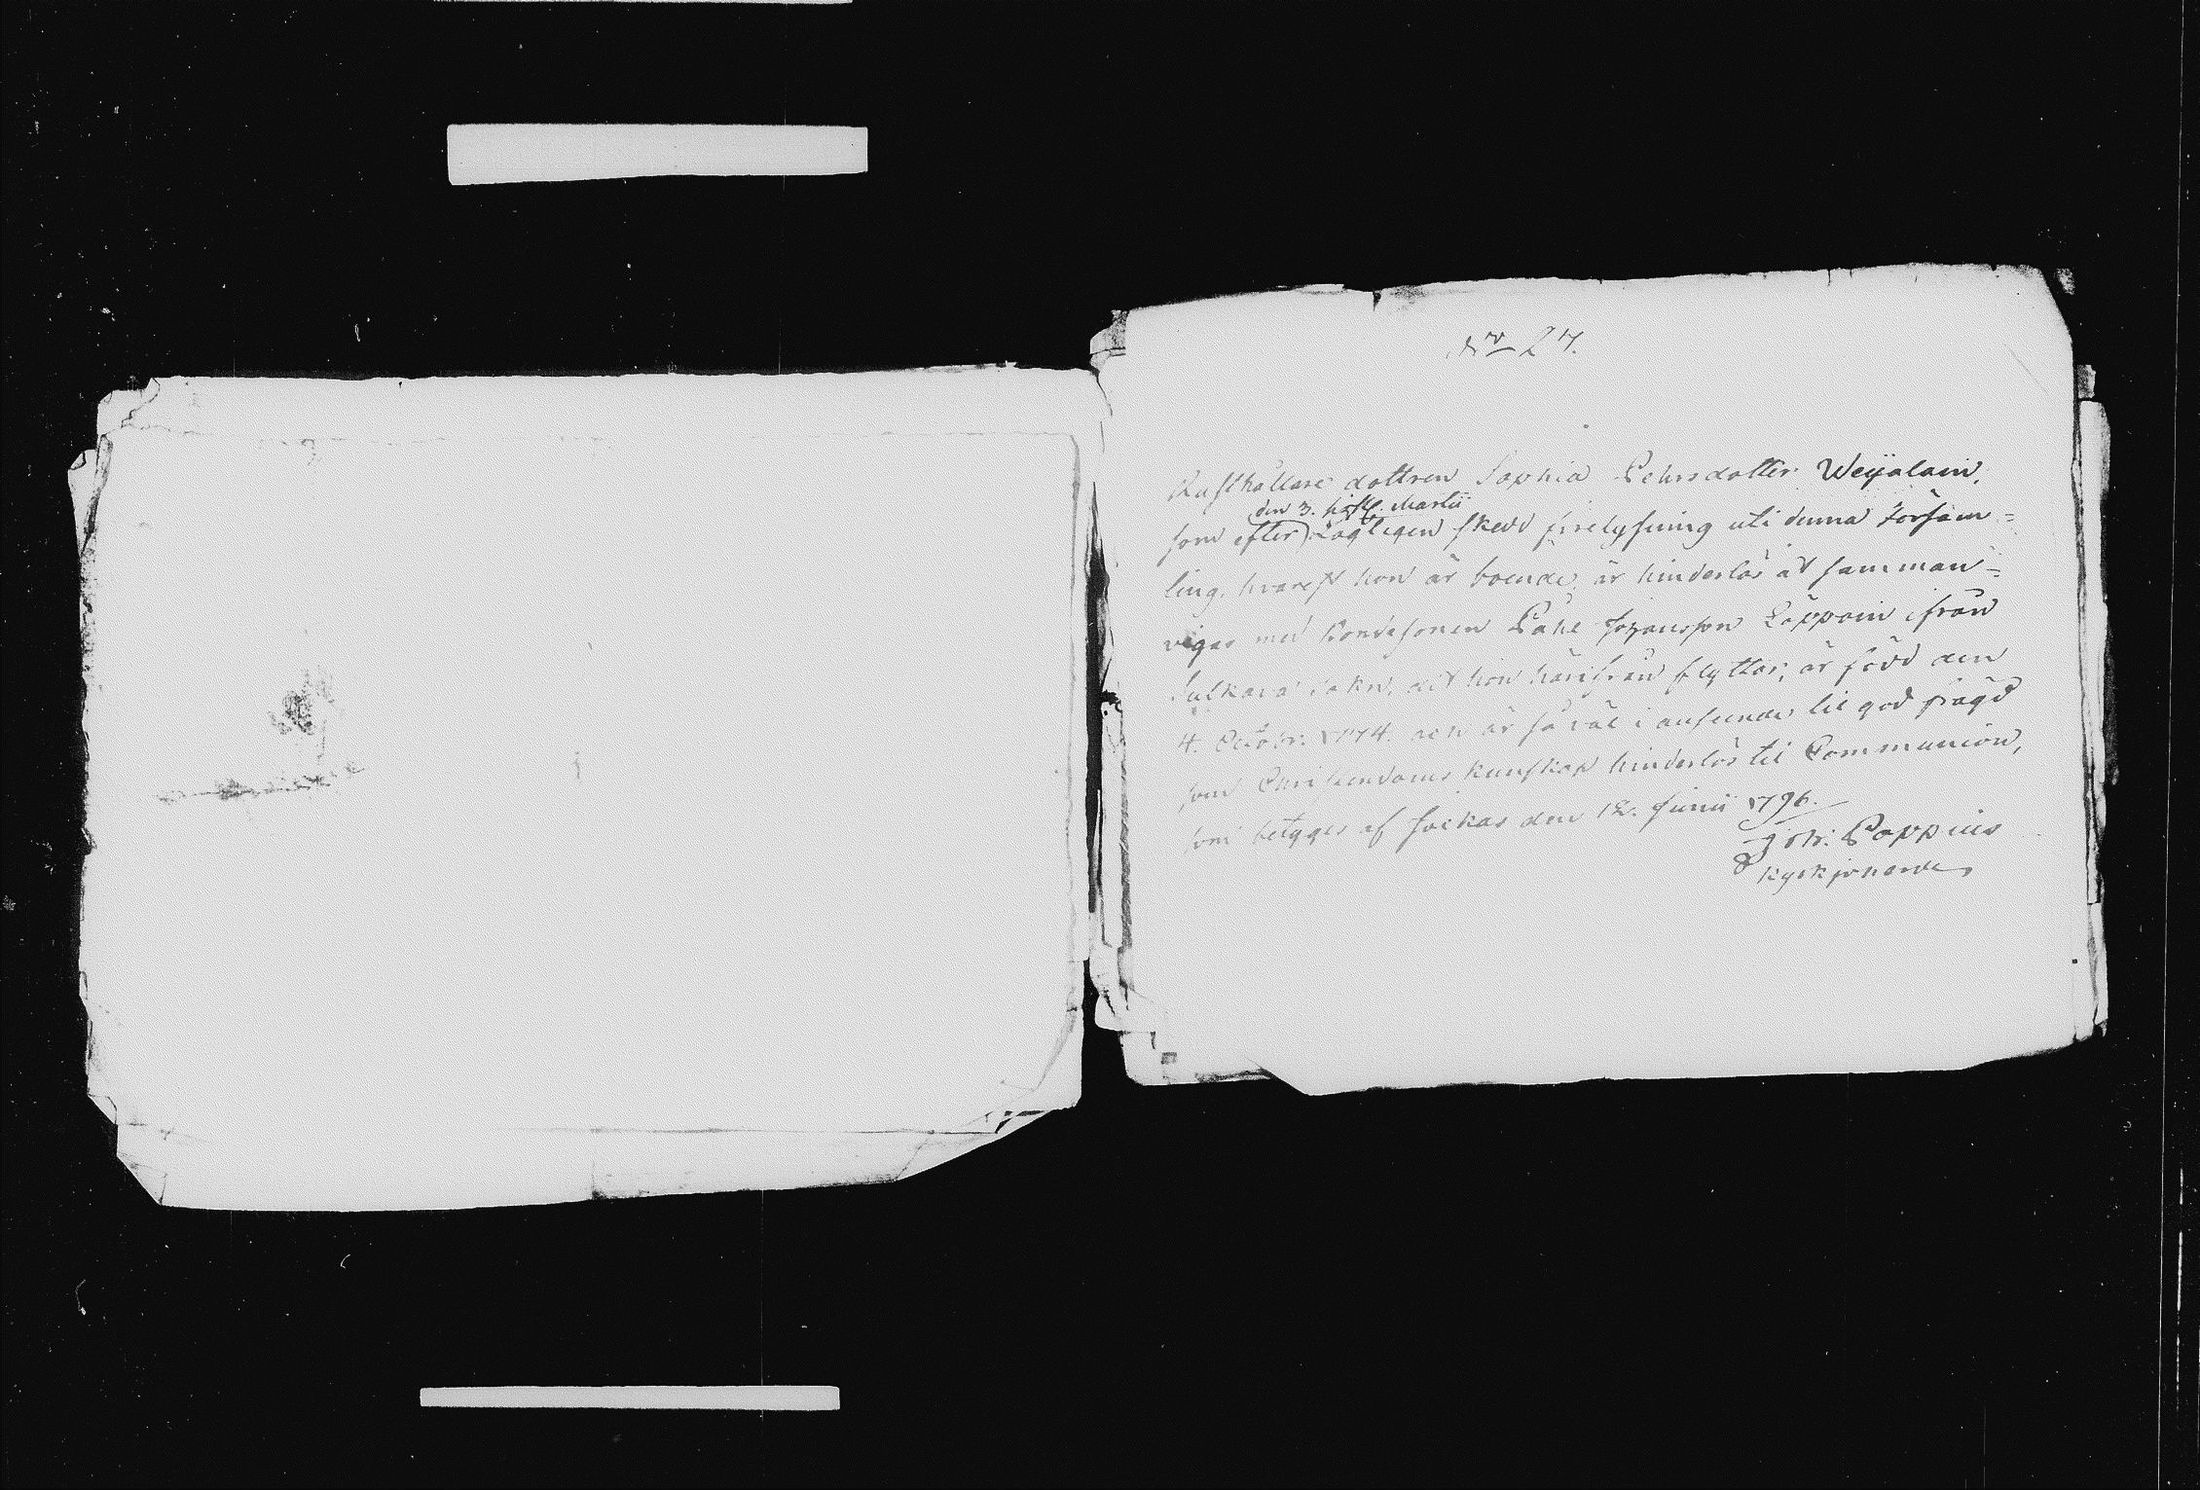 No 27.
Rusthållare dottren Sophia Pehrsdotter Weijalain,
den 3. hujus Martii
som efter Lagligen skedd förelysning uti denna Försam=
ling, hvarest hon är boende, är hinderlös at samman=
vigas med Bondesonen Påhl Johansson Läppäin ifrån
Sulkava Sokn, dit hon härifrån flyttar; är född den
4. Octobr. 1774. och är så väl i anseende til god frägd
som Christendoms kunskap hinderlös til Communion,
som betyges af Jockas den 12. Junii 1796.
Joh: Poppius
Kyrkjoherde